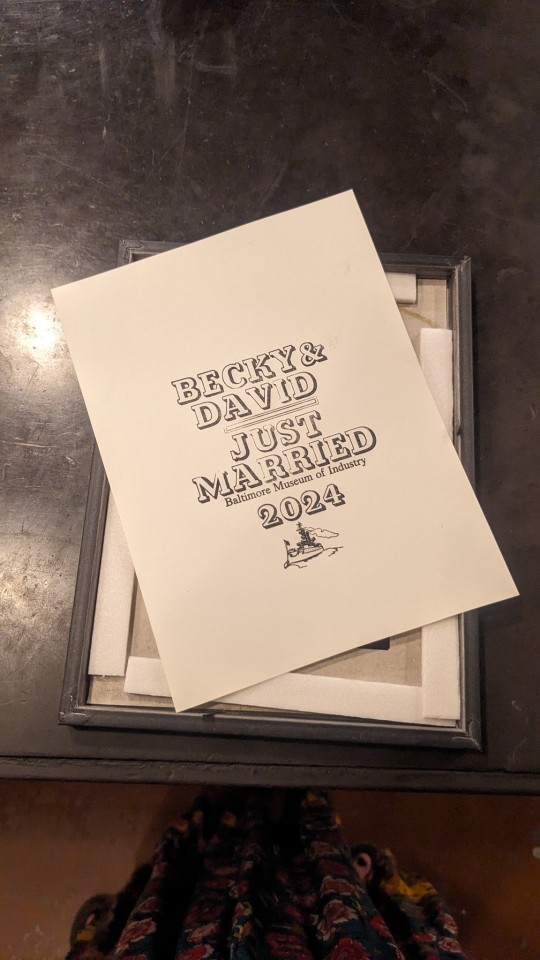 BECKY &
DAVID
JUST
MARRIED
Baltimore Museum of Industry
2024